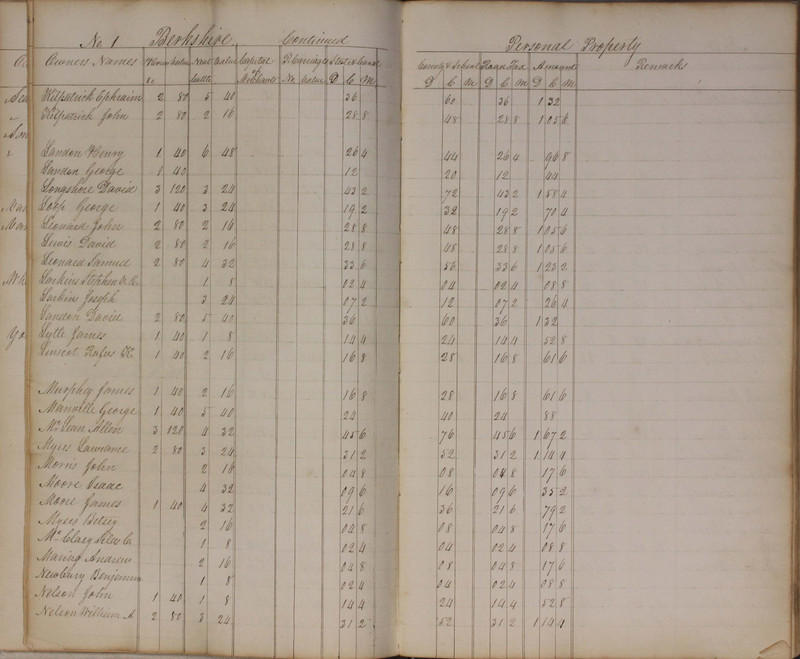 No 1 Berkshire, Continued Personal Property
Owners Names Horses Value Neat Value Capital P. Carriages State & Canal County & School Road Tax Amount Remarks
No Cattle Merchants No Value D C M D C M D C M D C M
Killpatrick Ephraim 2 80 5 40 36 60 36 1 32
Killpatrick John 2 80 2 16 28 8 48 28 8 1 05 6
Landon Henry 1 40 6 48 26 4 44 26 4 96 8
Landon George 1 40 12 20 12 44
Longshore David 3 120 3 24 43 2 72 43 2 1 58 4
Loop George 1 40 3 24 19 2 32 19 2 70 4
Leonard John 2 80 2 16 28 8 48 28 8 1 05 6
Lewis David 2 80 2 16 28 8 48 28 8 1 05 6
Leonard Samuel 2 80 4 32 33 6 56 33 6 1 23 2
Larkins Stephen 1 8 02 4 04 02 4 08 8
Larkins Joseph 3 24 07 2 12 07 2 26 4
Landon David 2 80 5 40 36 60 36 1 32
Lytle James 1 40 1 8 14 4 24 14 4 52 8
Rufus 1 40 2 16 16 8 28 16 8 61 6
Murphey James 1 40 2 16 16 8 28 16 8 61 6
Manville George 1 40 5 40 24 40 24 88
McLean Allen 3 120 4 32 45 6 76 45 6 1 67 2
Myres Lawrance 2 80 3 24 31 2 52 31 2 1 14 4
Morris John 2 16 04 8 08 04 8 17 6
Moore Isaac 4 32 09 6 16 09 6 35 2
Moore James 1 40 4 32 21 6 36 21 6 79 2
Myres Betsey 2 16 04 8 08 04 8 17 6
1 8 02 4 04 02 4 08 8
Andrew 2 16 04 8 08 04 8 17 6
Newbury Benjamin 1 8 02 4 04 02 4 08 8
Nelson John 1 40 1 8 14 4 24 14 4 52 8
Nelson William A 2 80 3 24 31 2 52 31 2 1 14 4